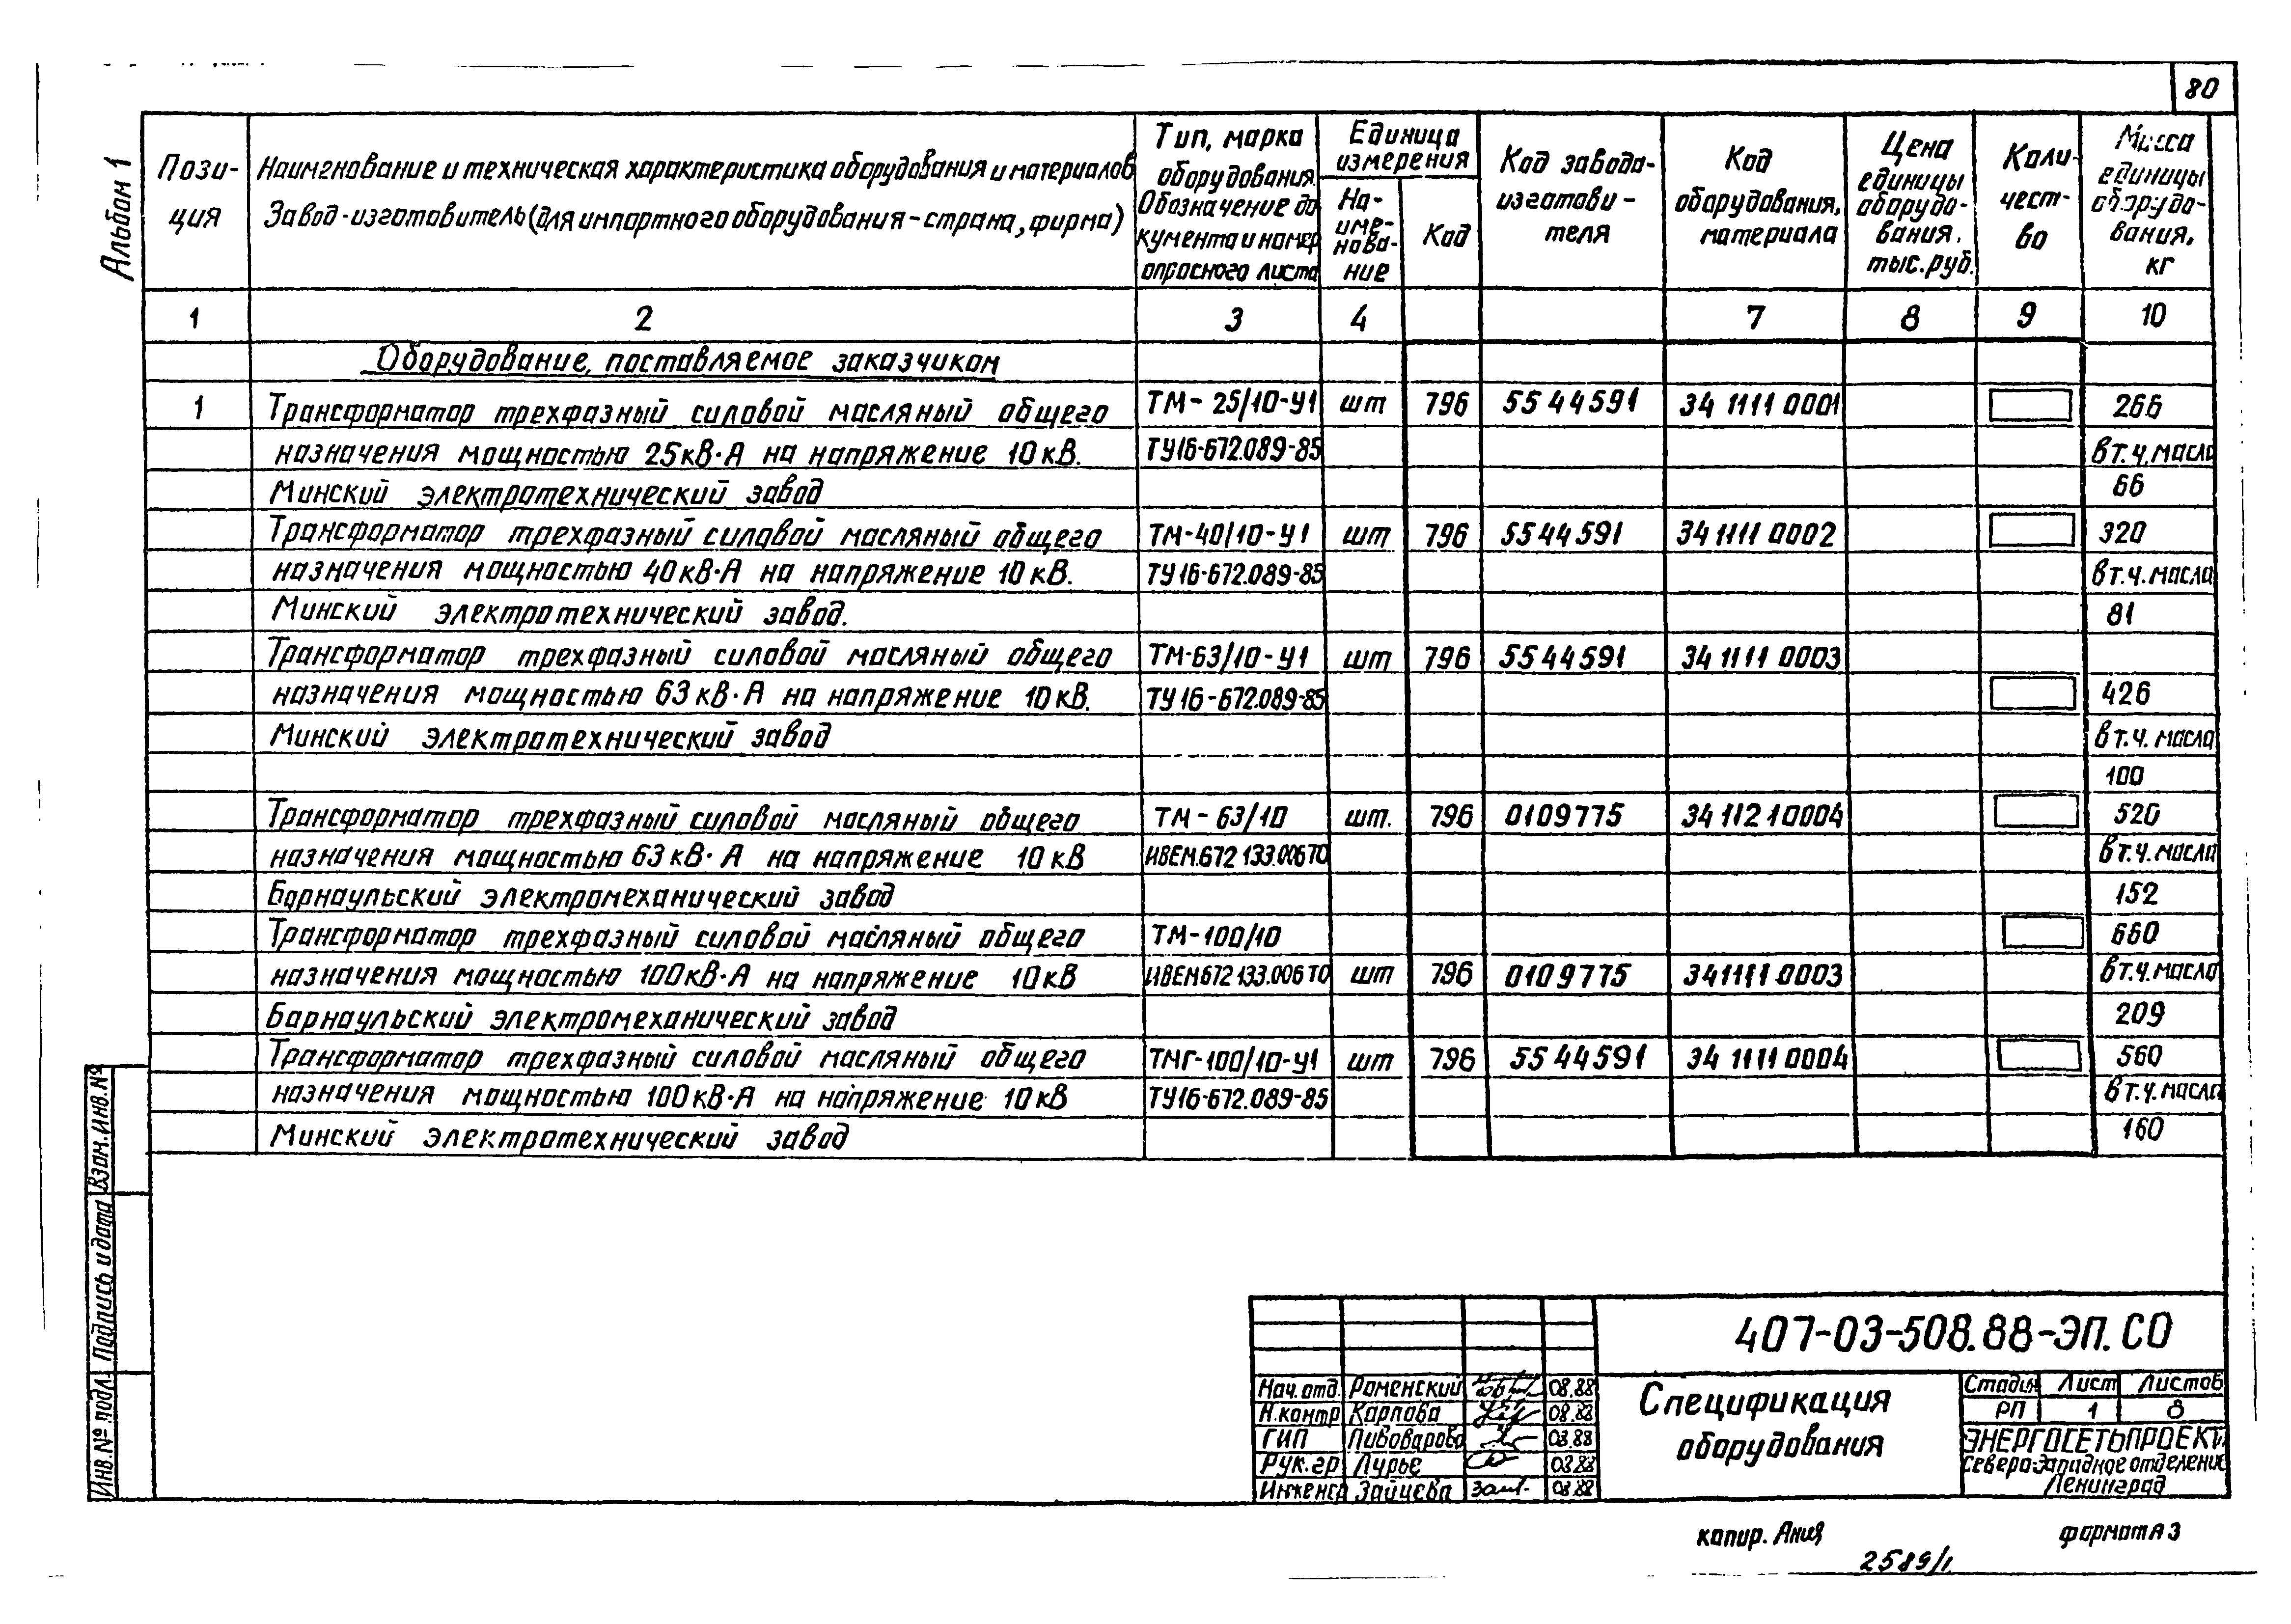 80
Альбом 1
Пози-
ция
Наименование и техническая характеристика оборудования и материалов
Завод-изготовитель (для импортного оборудования-страна, фирма)
Тип, марка
оборудования.
Обозначение до
кумента и номер
опросного листа
Единица
измерения
На-
име-
нова-
ние
Код
Код завода-
изготови-
теля
Код
оборудования,
материала
Цена
единицы
оборудо-
вания,
тыс.руб.
Коли-
чест-
во
Масса
единицы
оборудо-
вания,
кг
1 2 3 4 7 8 9 10
Оборудование, поставляемое заказчиком
1 Трансформатор трехфазный силовой масляный общего ТМ-25/10-У1 шт 796 5544591 34 1111 0001 266
назначения мощностью 25кВ·А на напряжение 10кВ. ТУ16-672.089-85 вт.ч.масла
Минский электротехнический завод 66
Трансформатор трехфазный силовой масляный общего ТМ-40/10-У1 шт 796 5544591 34 1111 0002 320
назначения мощностью 40кВ·А на напряжение 10кВ. ТУ16-672.089-85 вт.ч.масла
Минский электротехнический завод. 81
Трансформатор трехфазный силовой масляный общего ТМ-63/10-У1 шт 796 5544591 34 1111 0003
назначения мощностью 63кВ·А на напряжение 10кВ. ТУ16-672.089-85 426
Минский электротехнический завод вт.ч.масла
100
Трансформатор трехфазный силовой масляный общего ТМ-63/10 шт. 796 0109775 34 112 10004 520
назначения мощностью 63кВ·А на напряжение 10кВ ИВЕМ.672 133.006ТО вт.ч.масла
Барнаульский электромеханический завод 152
Трансформатор трехфазный силовой масляный общего ТМ-100/10 660
назначения мощностью 100кВ·А на напряжение 10кВ ИВЕМ672 133.006ТО шт 796 0109775 341111 0003 вт.ч.масла
Барнаульский электромеханический завод 209
Трансформатор трехфазный силовой масляный общего ТМГ-100/10-У1 шт 796 5544591 34 1111 0004 560
назначения мощностью 100кВ·А на напряжение 10кВ ТУ16-672.089-85 вт.ч.масла
Минский электротехнический завод 160
Взам.инв.№
Подпись и дата
Инв.№ подл.
407-03-508.88-ЭП.СО
Нач.отд. Роменский 08.88
Н.контр Карпова 08.88
ГИП Пивоварова 08.88
Рук.гр Лурье 08.88
Инженер Зайцева 08.88
Спецификация
оборудования
Стадия Лист Листов
РП 1 8
ЭНЕРГОСЕТЬПРОЕКТ
Северо-Западное отделение
Ленинград
копир. Ания
формат А3
2589/1